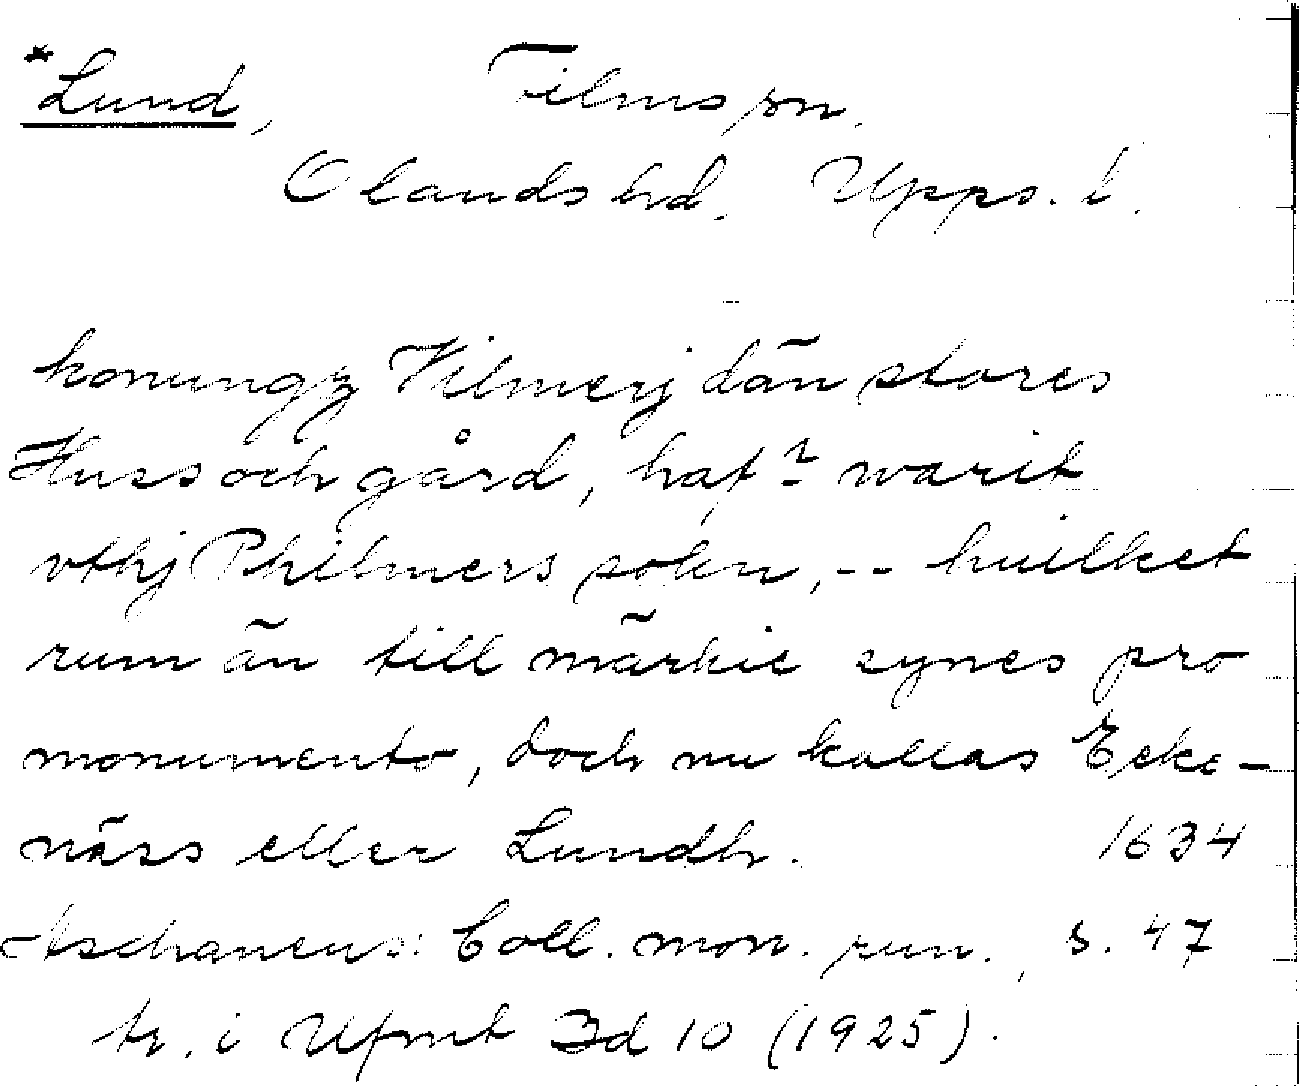 *Lund, Films sn.
Olands hd. Upps. l.
konungz Vilmerj dän stores
Huss och gård, haf? warit
vthj Philmers sokn, -- huilket
rum än till märkie synes pro
monumento, doch nu kallas Ecke-
näss eller Lundh. 1634
Aschaneus: Coll. mon. run., s. 47
tr. i Ufmt Bd 10 (1925).